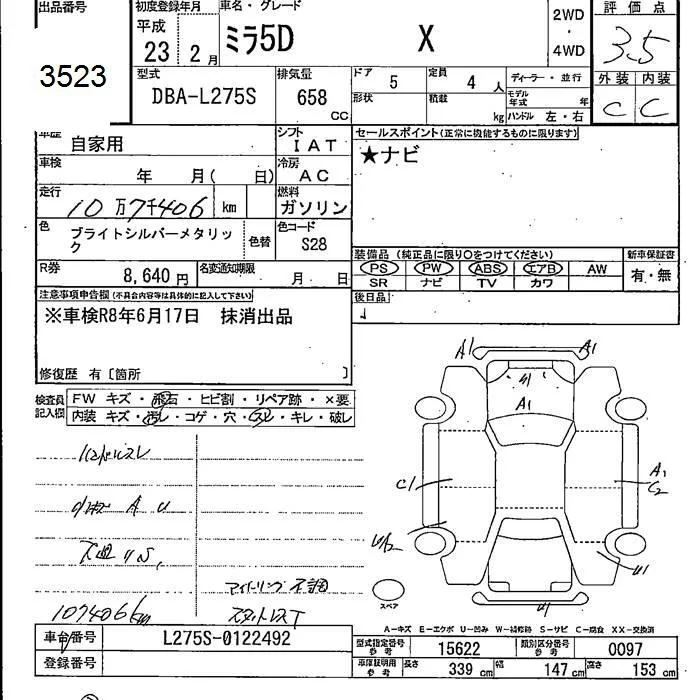 出品番号
3523
初度登録年月
平成
23 2 月
車名・グレード
ミラ5D X
2WD
・
4WD
評価点
3.5
外装 内装
C C
型式
DBA-L275S
排気量
658
CC
ドア 5
定員 4 人
形状
積載 kg
ディーラー・並行
モデル年式 年
ハンドル 左・右
車歴 自家用
シフト IAT
車検 年 月( 日)
冷房 AC
走行 10万7千406 km
燃料 ガソリン
色 ブライトシルバーメタリック
色替
色コード S28
R券 8,640 円
名変通知期限 月 日
セールスポイント(正常に機能するものに限ります)
★ナビ
装備品 (純正品に限り○をつけてください)
新車保証書
PS PW ABS エアB AW
SR ナビ TV カワ
有・無
後日品
注意事項申告欄(不具合内容等は具体的に記入して下さい)
※車検R8年6月17日 抹消出品
修復歴 有〔箇所 〕
検査員記入欄
FW キズ・飛石・ヒビ割・リペア跡・×要
内装 キズ・汚レ・コゲ・穴・スレ・キレ・破レ
ハンドルスレ
小キズ A U
下廻りS,
107406km
アイドーリング不調
スタットレスT
A1 A1
A1
C1
A1
C2
U/A2
U1
U1
スペア
A-キズ E-エクボ U-凹み W-補修跡 S-サビ C-腐食 XX-交換済
車台番号 L275S-0122492
登録番号
型式指定番号 参考 15622
類別区分番号 参考 0097
車庫証明用 参考
長さ 339 cm
幅 147 cm
高さ 153 cm